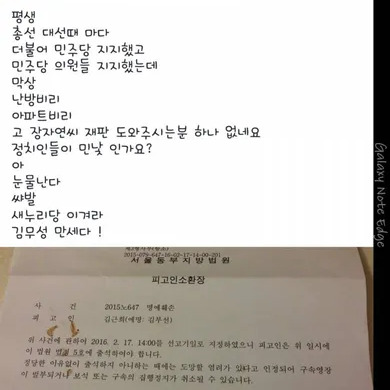 평생
총선 대선때 마다
더불어 민주당 지지했고
민주당 의원들 지지했는데
막상
난방비리
아파트비리
고 장자연씨 재판 도와주시는분 하나 없네요
정치인들이 민낯 인가요?
아
눈물난다
쌰발
새누리당 이겨라
김무성 만세다 !
Galaxy Note Edge
2015-079-647-16-02-17-14-00-201
서울동부지방법원
피고인소환장
사 건 2015노647 명예훼손
피 고 인 김근희(예명: 김부선)
위 사건에 관하여 2016. 2. 17. 14:00를 선고기일로 지정하였으니 피고인은 위 일시에
이 법원 5호에 출석하여야 합니다.
정당한 이유없이 출석하지 아니하는 때에는 도망할 염려가 있다고 인정되어 구속영장
이 발부되거나 보석 또는 구속의 집행정지가 취소될 수 있습니다.